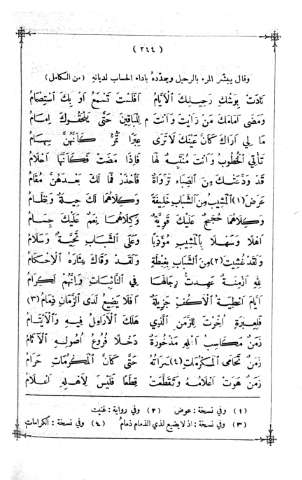 (٢٤٤)
وقال يبشر المرء بالرحيل ويهدده باداء الحساب لديانه (من الكامل)
نادت بوشك رحيلك الأيام أفلست تسمع أو بك استصمام
ومضى أمامك من رأيت وأنت للباقين حتى يلحقوك إمام
ما لي أراك كأن عينك لا ترى عبرا تمر كأنهن سهام
تأتي الخطوب وأنت منتبه لها فإذا مضت فكأنها أحلام
قد ودعتك من الصباء نزواته فاحذر فما لك بعدهن مقام
عرض (١) المشيب من الشباب خليفة وكلاهما لك حلية ونظام
وكلاهما حجج عليك قوية وكلاهما نعم عليك جسام
أهلا وسهلا بالمشيب مؤدبا وعلى الشباب تحية وسلام
ولقد غشيت (٢) من الشباب بغبطة ولقد وقاك عثاره الإحكام
لله أزمنة عهدت رجالها في النائبات وإنهم لكرام
أيام أعطية الأكف جزيلة إذ لا يضيع لدى الزمان ذمام (٣)
فلعبرة أخرت للزمن الذي هلك الأرامل فيه والأيتام
زمن مكاسب أهله مدخولة دخلا فروع أصوله الآثام
زمن تحامى المكرمات (٤) سراته حتى كأن المكرمات حرام
زمن هوت أعلامه وتقطعت قطعا فليس لأهله أعلام
(١) وفي نسخة: عوض (٢) وفي رواية: غنيت
(٣) وفي نسخة: إذ لا يضيع لذي الذمام ذمام (٤) وفي نسخة: الكرامات